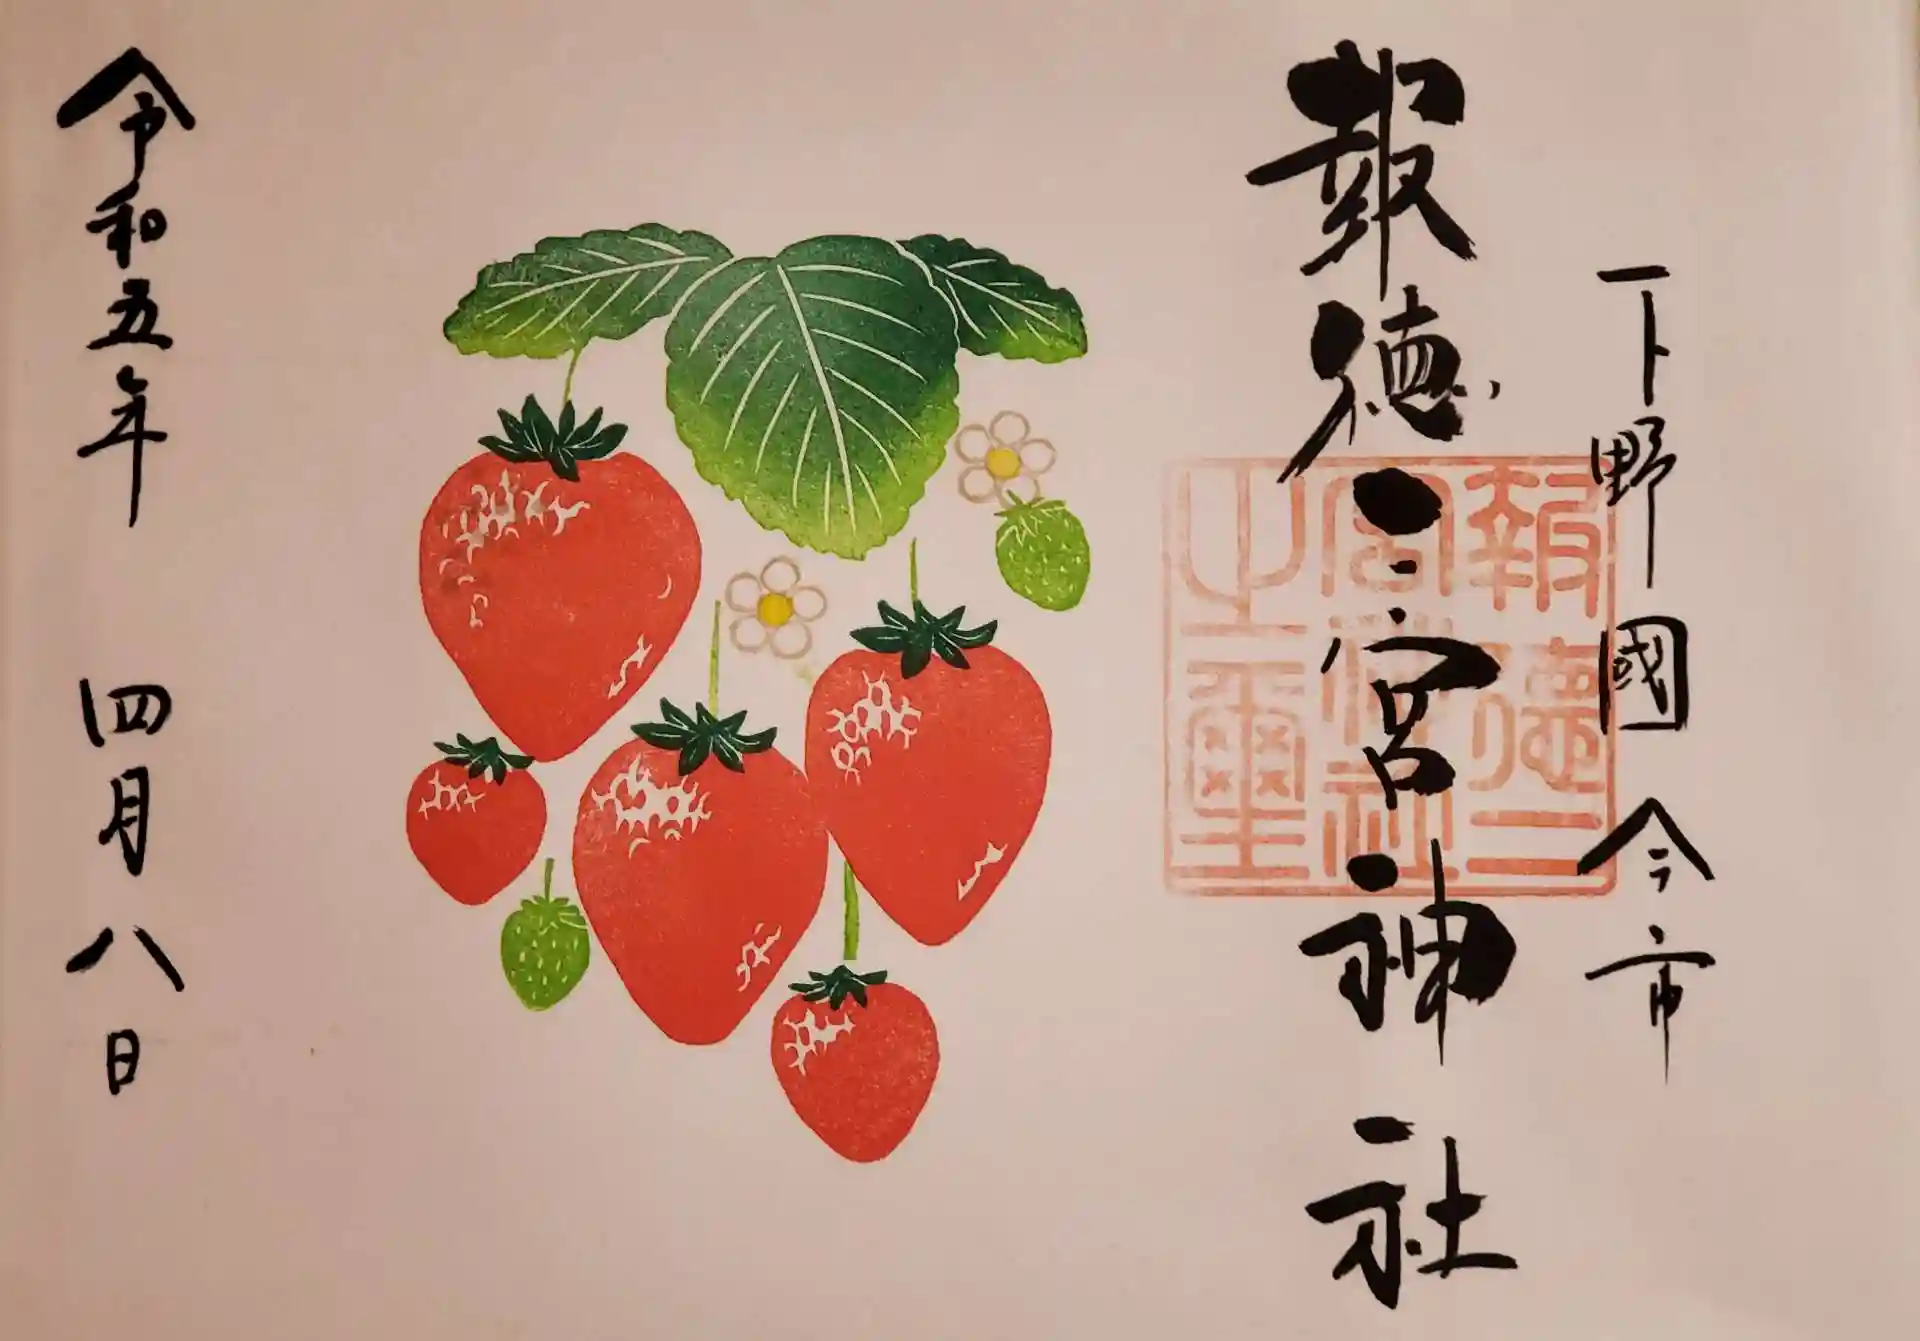 下野國 今市
報徳二宮神社
報徳二宮神社之璽
令和五年 四月八日